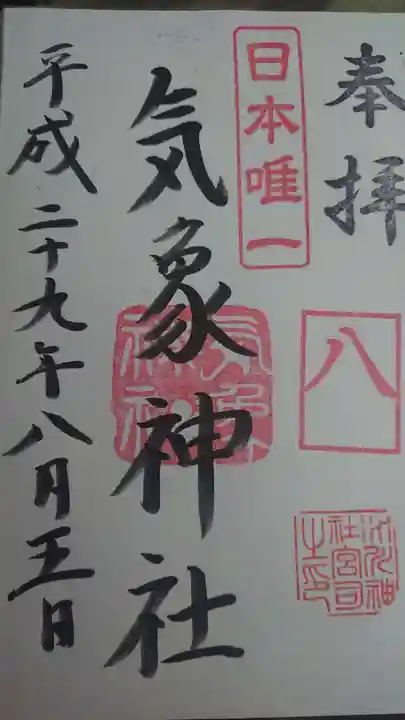 奉拝
八
日本唯一
気象神社
平成二十九年八月五日